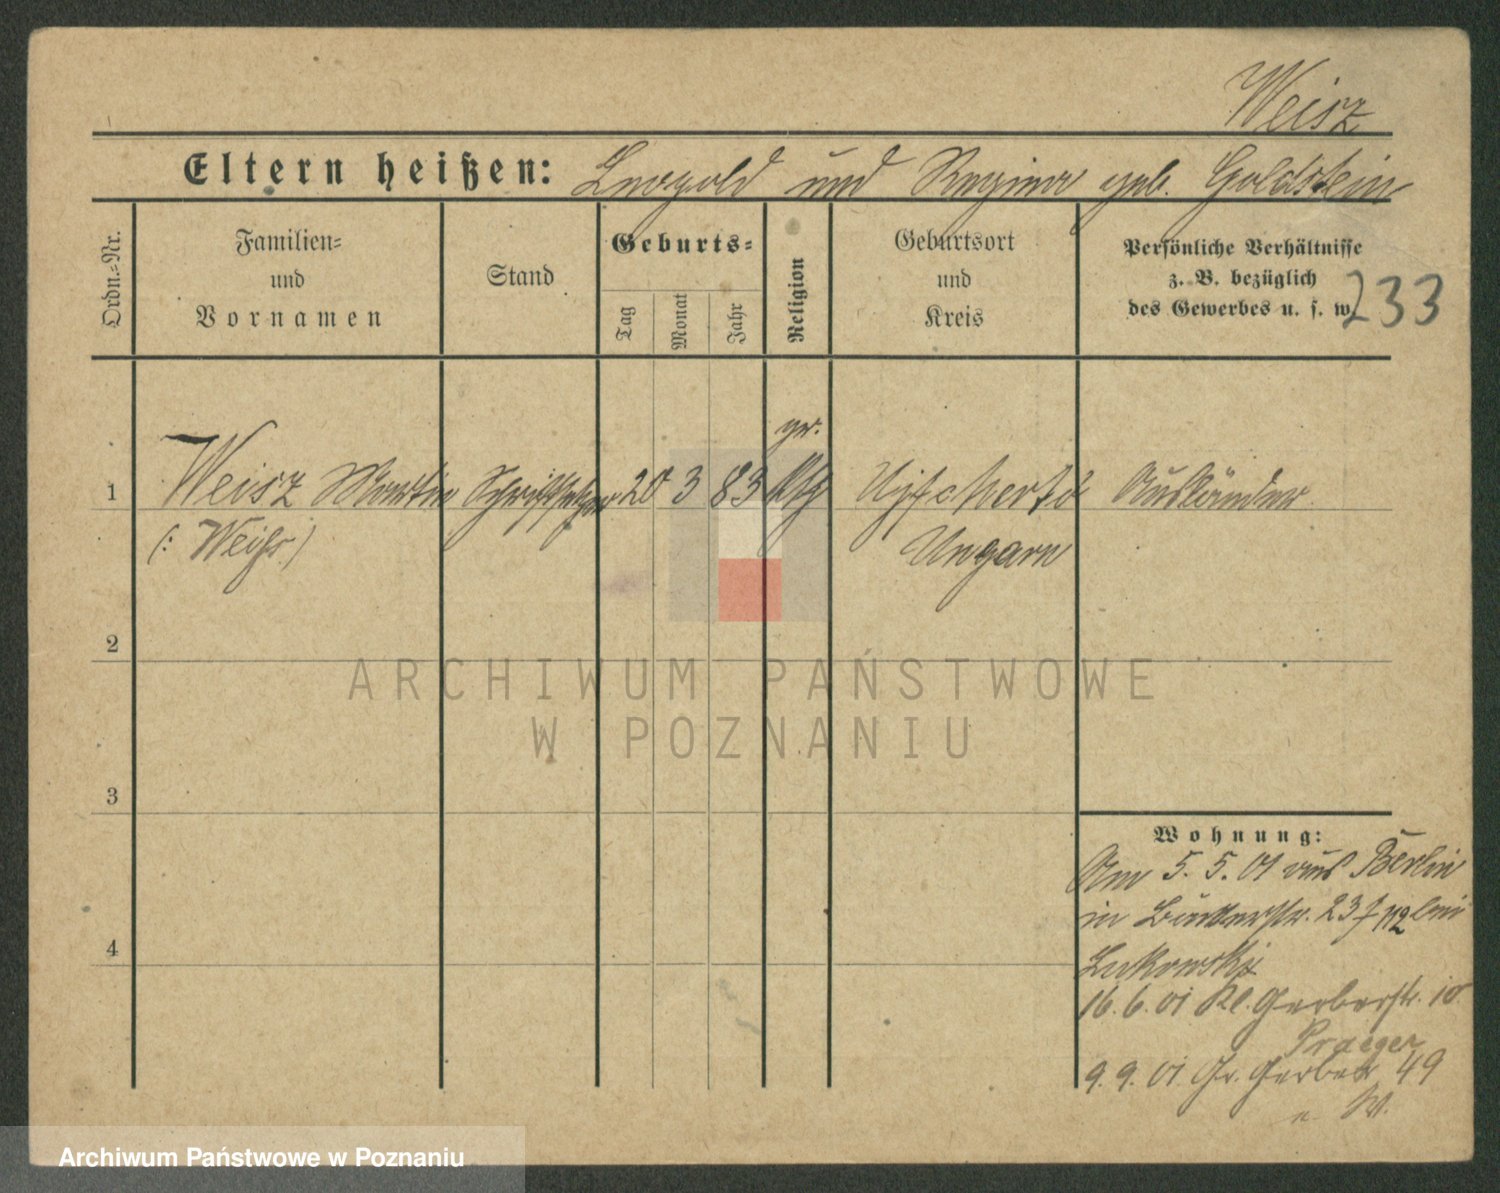 Weisz
Eltern heißen: Leopold und Regina geb. Goldstein
Ordn.=Nr.
Familien=
und
Vornamen
Stand
Geburts=
Tag
Monat
Jahr
Religion
Geburtsort
und
Kreis
Persönliche Verhältnisse
z. B. bezüglich
des Gewerbes u. s. w.
233
1 Weisz Martin Schriftsetzer 20 3 83 Ausländer
(: Weiss)
Ungarn
2
ARCHIWUM PAŃSTWOWE
W POZNANIU
3
Wohnung:
Am 5. 5. 01 aus Berlin
in 23 bei
4
Lukowski
16. 6. 01 Kl. Gerberstr. 10
Praeger
9. 9. 01. Gr. Gerber 49
n. W.
Archiwum Państwowe w Poznaniu